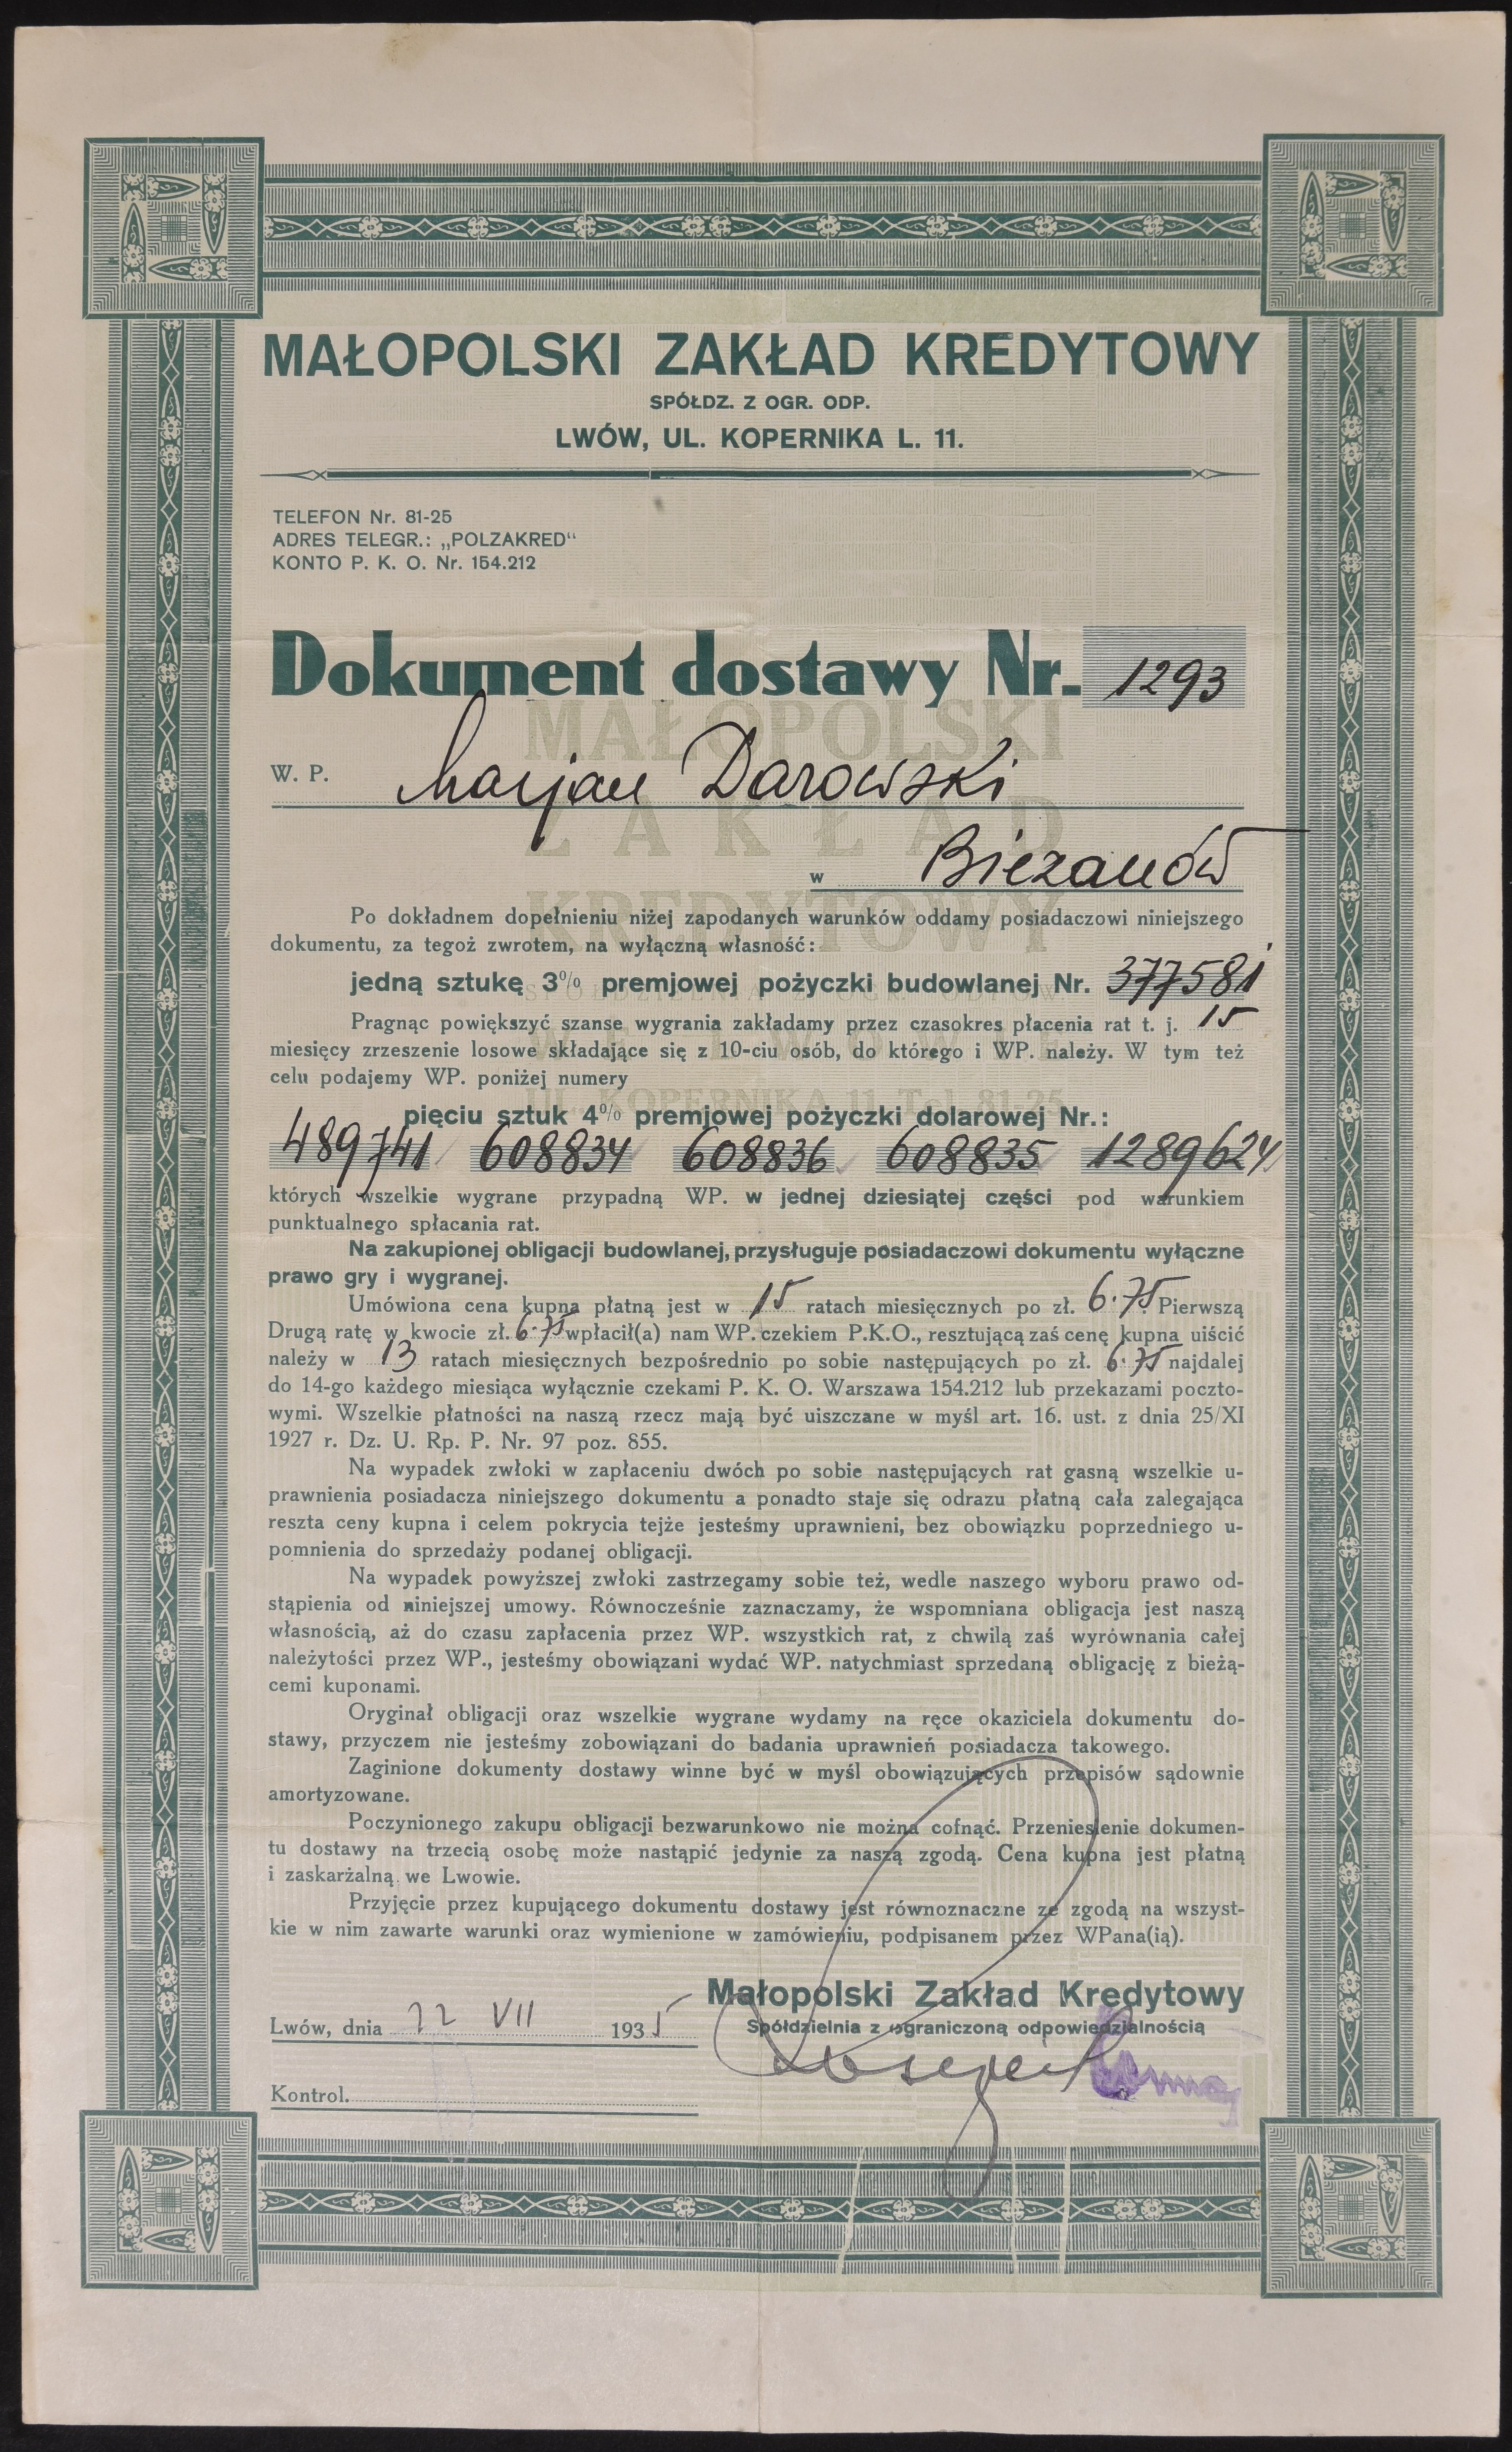 MAŁOPOLSKI ZAKŁAD KREDYTOWY
SPÓŁDZ. Z OGR. ODP.
LWÓW, UL. KOPERNIKA L. 11.
TELEFON Nr. 81-25
ADRES TELEGR.: „POLZAKRED“
KONTO P. K. O. Nr. 154.212
Dokument dostawy Nr. 1293
W. P. Marjan Darowski
w Bieżanów
Po dokładnem dopełnieniu niżej zapodanych warunków oddamy posiadaczowi niniejszego
dokumentu, za tegoż zwrotem, na wyłączną własność:
jedną sztukę 3% premjowej pożyczki budowlanej Nr. 377581
Pragnąc powiększyć szanse wygrania zakładamy przez czasokres płacenia rat t. j. 15
miesięcy zrzeszenie losowe składające się z 10-ciu osób, do którego i WP. należy. W tym też
celu podajemy WP. poniżej numery
pięciu sztuk 4% premjowej pożyczki dolarowej Nr.:
489741 608834 608836 608835 1289624
których wszelkie wygrane przypadną WP. w jednej dziesiątej części pod warunkiem
punktualnego spłacania rat.
Na zakupionej obligacji budowlanej, przysługuje posiadaczowi dokumentu wyłączne
prawo gry i wygranej.
Umówiona cena kupna płatną jest w 15 ratach miesięcznych po zł. 6.75 Pierwszą
Drugą ratę w kwocie zł. 6.75 wpłacił(a) nam WP. czekiem P.K.O., resztującą zaś cenę kupna uiścić
należy w 13 ratach miesięcznych bezpośrednio po sobie następujących po zł. 6.75 najdalej
do 14-go każdego miesiąca wyłącznie czekami P. K. O. Warszawa 154.212 lub przekazami poczto-
wymi. Wszelkie płatności na naszą rzecz mają być uiszczane w myśl art. 16. ust. z dnia 25/XI
1927 r. Dz. U. Rp. P. Nr. 97 poz. 855.
Na wypadek zwłoki w zapłaceniu dwóch po sobie następujących rat gasną wszelkie u-
prawnienia posiadacza niniejszego dokumentu a ponadto staje się odrazu płatną cała zalegająca
reszta ceny kupna i celem pokrycia tejże jesteśmy uprawnieni, bez obowiązku poprzedniego u-
pomnienia do sprzedaży podanej obligacji.
Na wypadek powyższej zwłoki zastrzegamy sobie też, wedle naszego wyboru prawo od-
stąpienia od niniejszej umowy. Równocześnie zaznaczamy, że wspomniana obligacja jest naszą
własnością, aż do czasu zapłacenia przez WP. wszystkich rat, z chwilą zaś wyrównania całej
należytości przez WP., jesteśmy obowiązani wydać WP. natychmiast sprzedaną obligację z bieżą-
cemi kuponami.
Oryginał obligacji oraz wszelkie wygrane wydamy na ręce okaziciela dokumentu do-
stawy, przyczem nie jesteśmy zobowiązani do badania uprawnień posiadacza takowego.
Zaginione dokumenty dostawy winne być w myśl obowiązujących przepisów sądownie
amortyzowane.
Poczynionego zakupu obligacji bezwarunkowo nie można cofnąć. Przeniesienie dokumen-
tu dostawy na trzecią osobę może nastąpić jedynie za naszą zgodą. Cena kupna jest płatną
i zaskarżalną we Lwowie.
Przyjęcie przez kupującego dokumentu dostawy jest równoznaczne ze zgodą na wszyst-
kie w nim zawarte warunki oraz wymienione w zamówieniu, podpisanem przez WPana(ią).
Małopolski Zakład Kredytowy
Spółdzielnia z ograniczoną odpowiedzialnością
Lwów, dnia 22 VII 1935
Kontrol.
MAŁOPOLSKI
ZAKŁAD
KREDYTOWY
UL. KOPERNIKA 11 Tel. 81-25